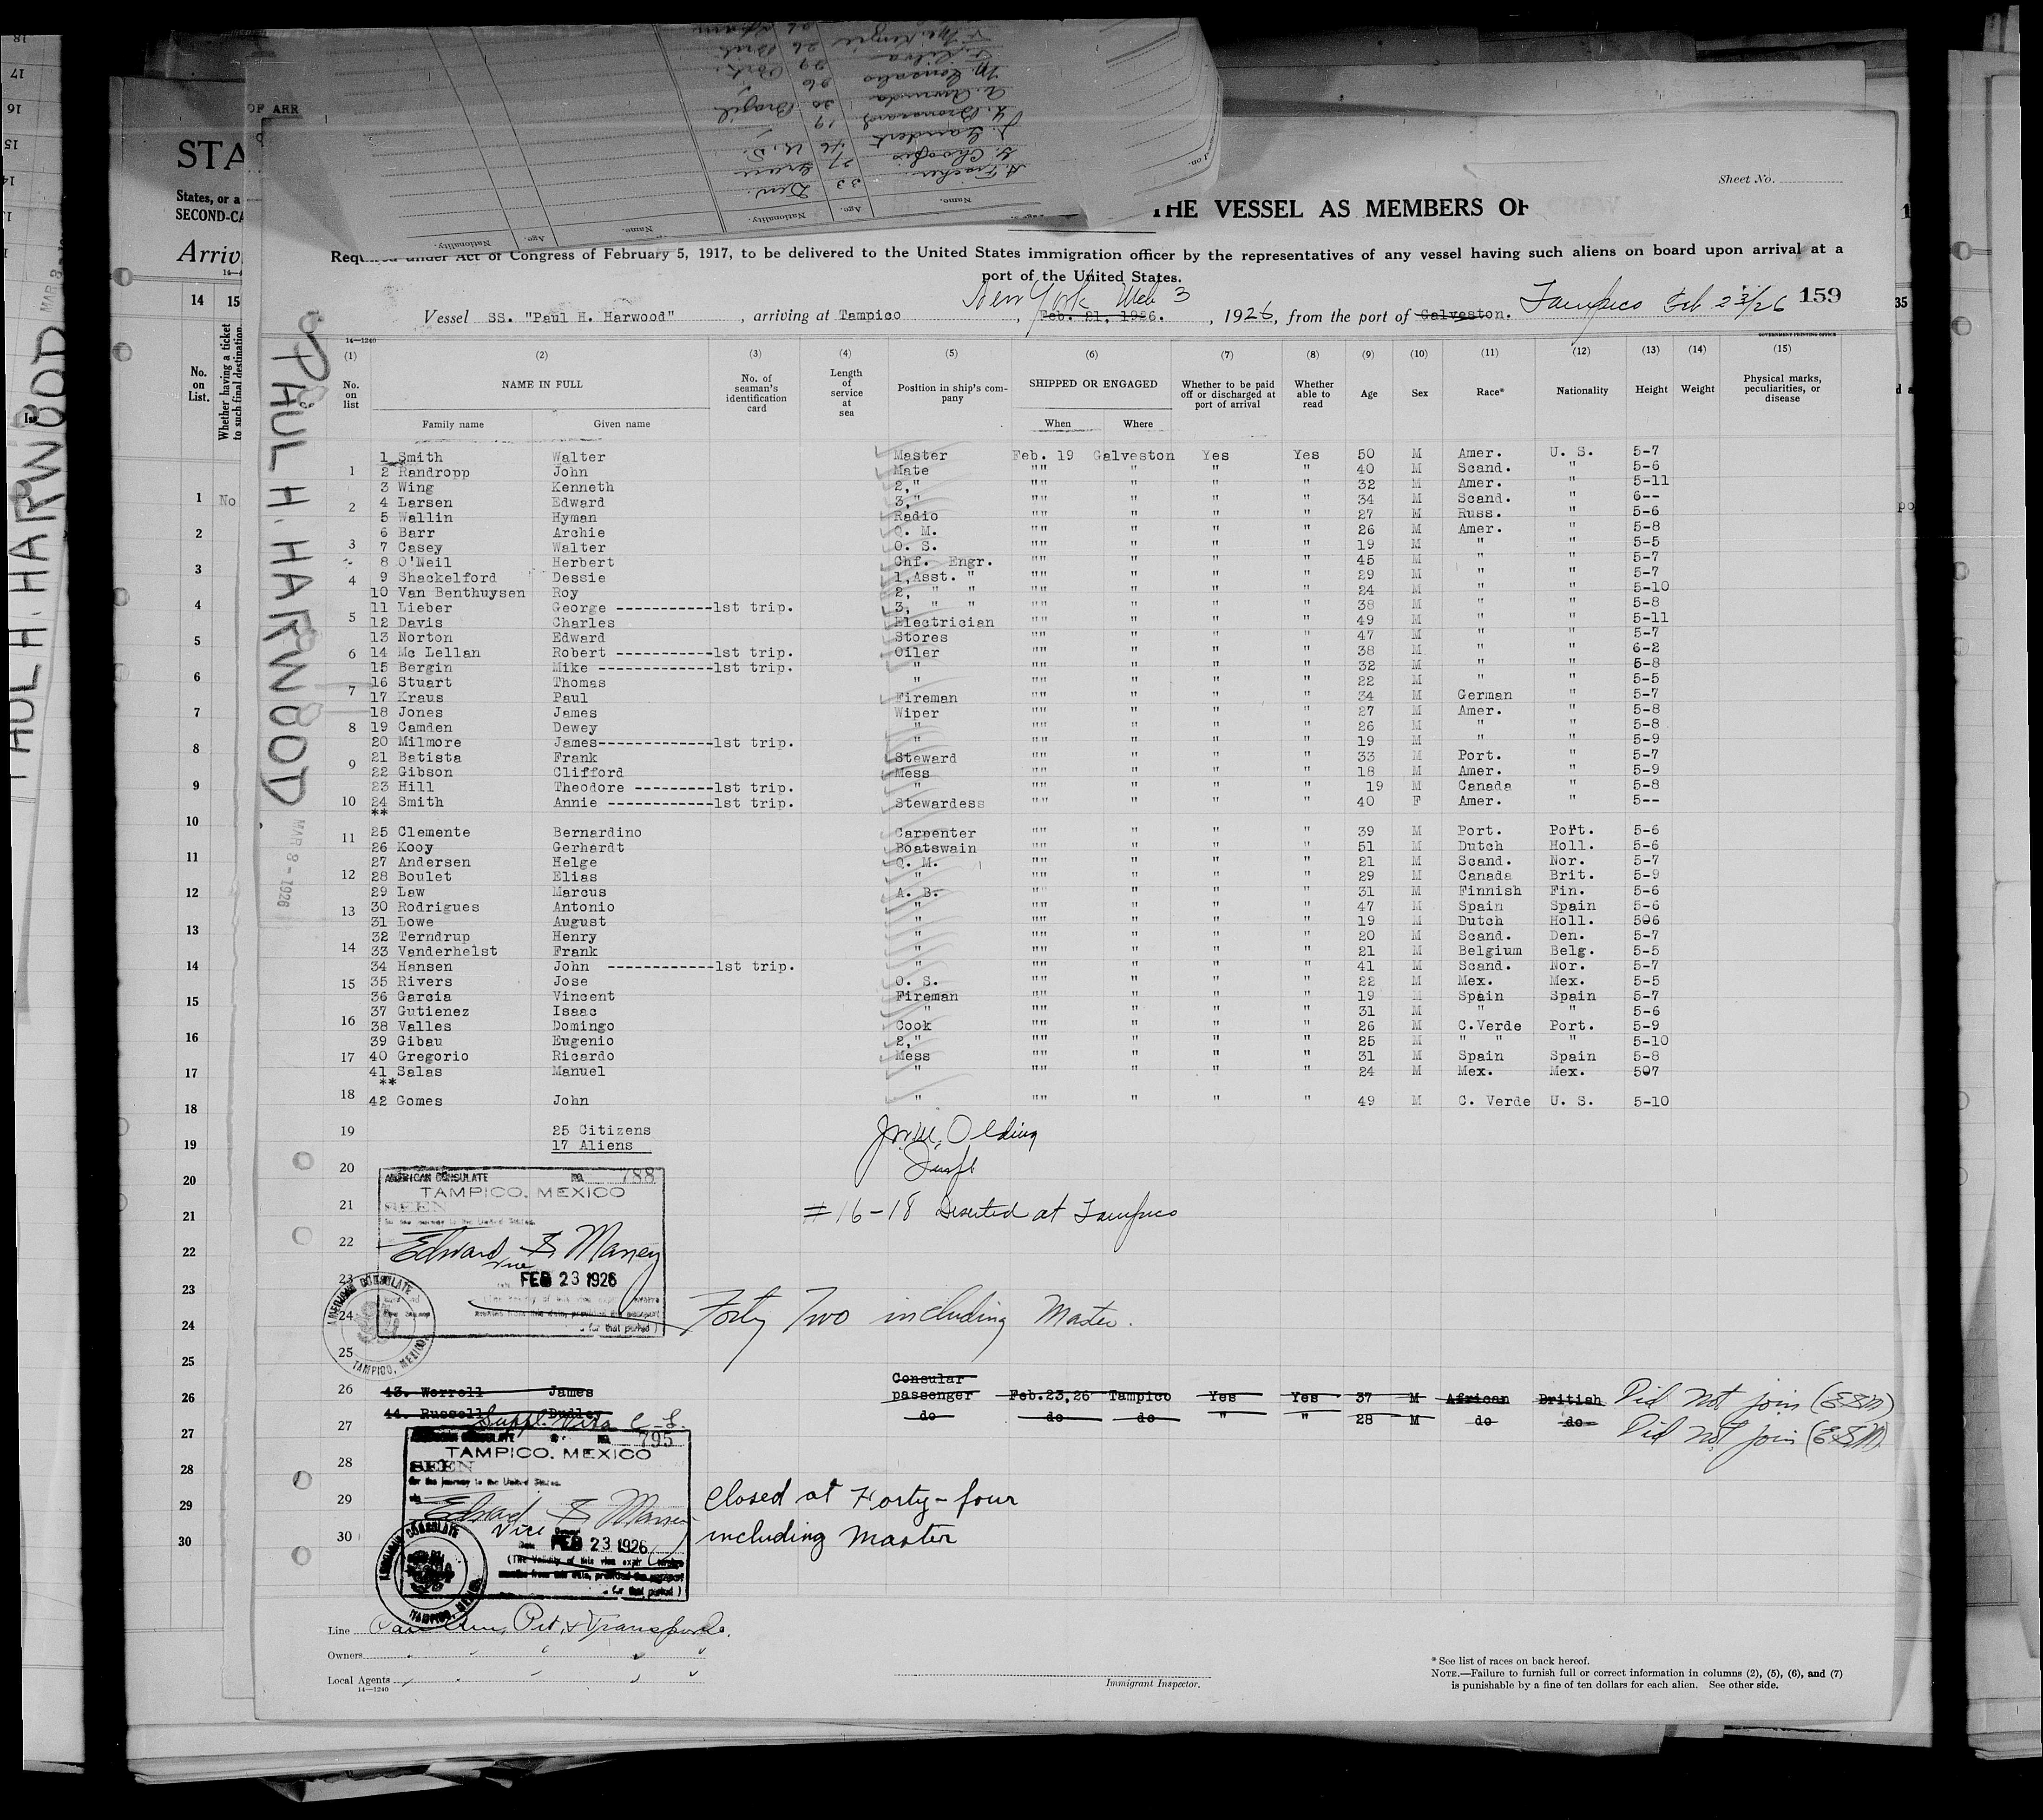 Sheet No.
THE VESSEL AS MEMBERS OF
Required under Act of Congress of February 5, 1917, to be delivered to the United States immigration officer by the representatives of any vessel having such aliens on board upon arrival at a
port of the United States.
New York Mch 3
Vessel SS. "Paul H. Harwood", arriving at Tampico, Feb. 21, 1926., 1926, from the port of Galveston. Tampico Feb 23/26 159
14—1240 GOVERNMENT PRINTING OFFICE
(1) (2) (3) (4) (5) (6) (7) (8) (9) (10) (11) (12) (13) (14) (15)
No. on list NAME IN FULL No. of seaman's identification card Length of service at sea Position in ship's company SHIPPED OR ENGAGED Whether to be paid off or discharged at port of arrival Whether able to read Age Sex Race* Nationality Height Weight Physical marks, peculiarities, or disease
Family name Given name When Where
1 Smith Walter Master Feb. 19 Galveston Yes Yes 50 M Amer. U. S. 5-7
2 Randropp John Mate "" " " " 40 M Scand. " 5-6
3 Wing Kenneth 2," "" " " " 32 M Amer. " 5-11
4 Larsen Edward 3," "" " " " 34 M Scand. " 6--
5 Wallin Hyman Radio "" " " " 27 M Russ. " 5-6
6 Barr Archie Q. M. "" " " " 26 M Amer. " 5-8
7 Casey Walter O. S. "" " " " 19 M " " 5-5
8 O'Neil Herbert Chf. Engr. "" " " " 45 M " " 5-7
9 Shackelford Dessie 1,Asst. " "" " " " 29 M " " 5-7
10 Van Benthuysen Roy 2, " " "" " " " 24 M " " 5-10
11 Lieber George -----------1st trip. 3, " " "" " " " 38 M " " 5-8
12 Davis Charles Electrician "" " " " 49 M " " 5-11
13 Norton Edward Stores "" " " " 47 M " " 5-7
14 Mc Lellan Robert -----------1st trip. Oiler "" " " " 38 M " " 6-2
15 Bergin Mike -------------1st trip. " "" " " " 32 M " " 5-8
16 Stuart Thomas " "" " " " 22 M " " 5-5
17 Kraus Paul Fireman "" " " " 34 M German " 5-7
18 Jones James Wiper "" " " " 27 M Amer. " 5-8
19 Camden Dewey " "" " " " 26 M " " 5-8
20 Milmore James-------------1st trip. " "" " " " 19 M " " 5-9
21 Batista Frank Steward "" " " " 33 M Port. " 5-7
22 Gibson Clifford Mess "" " " " 18 M Amer. " 5-9
23 Hill Theodore ---------1st trip. " "" " " " 19 M Canada " 5-8
24 Smith Annie ------------1st trip. Stewardess "" " " " 40 F Amer. " 5--
**
25 Clemente Bernardino Carpenter "" " " " 39 M Port. Port. 5-6
26 Kooy Gerhardt Boatswain "" " " " 51 M Dutch Holl. 5-6
27 Andersen Helge Q. M. "" " " " 21 M Scand. Nor. 5-7
28 Boulet Elias " "" " " " 29 M Canada Brit. 5-9
29 Law Marcus A. B. "" " " " 31 M Finnish Fin. 5-6
30 Rodrigues Antonio " "" " " " 47 M Spain Spain 5-6
31 Lowe August " "" " " " 19 M Dutch Holl. 506
32 Terndrup Henry " "" " " " 20 M Scand. Den. 5-7
33 Vanderhelst Frank " "" " " " 21 M Belgium Belg. 5-5
34 Hansen John ------------1st trip. " "" " " " 41 M Scand. Nor. 5-7
35 Rivers Jose O. S. "" " " " 22 M Mex. Mex. 5-5
36 Garcia Vincent Fireman "" " " " 19 M Spain Spain 5-7
37 Gutienez Isaac " "" " " " 31 M " " 5-6
38 Valles Domingo Cook "" " " " 26 M C.Verde Port. 5-9
39 Gibau Eugenio 2," "" " " " 25 M " " " 5-10
40 Gregorio Ricardo Mess "" " " " 31 M Spain Spain 5-8
41 Salas Manuel " "" " " " 24 M Mex. Mex. 507
**
42 Gomes John " "" " " " 49 M C. Verde U. S. 5-10
25 Citizens
17 Aliens
Olding
AMERICAN CONSULATE NO. 788
TAMPICO, MEXICO
SEEN
#16-18 Deserted at Tampico
Edward S Maney
FEB 23 1926
for that period)
AMERICAN CONSULATE TAMPICO, MEXICO
Forty Two including Master.
43. Worrell James Consular passenger Feb.23,26 Tampico Yes Yes 37 M African British Did not join (ESM)
44. Russell Dudley do do do " " 28 M do do Did not join (ESM)
Suppl. Visa
NO. 795
TAMPICO, MEXICO
SEEN
for the journey to the United States.
Edward S Maney
Vice Consul
Date FEB 23 1926
for that period)
AMERICAN CONSULATE TAMPICO, MEXICO
Closed at Forty-four
including Master
Line Pet. & Transport Co.
Owners
Local Agents
14—1240
Immigrant Inspector.
* See list of races on back hereof.
NOTE.—Failure to furnish full or correct information in columns (2), (5), (6), and (7)
is punishable by a fine of ten dollars for each alien. See other side.
PAUL H. HARWOOD
MAR 8 - 1926
PAUL H. HARWOOD
STA
States, or a
SECOND-CA
Arriv
14 15
No. on List.
Whether having a ticket to such final destination.
No